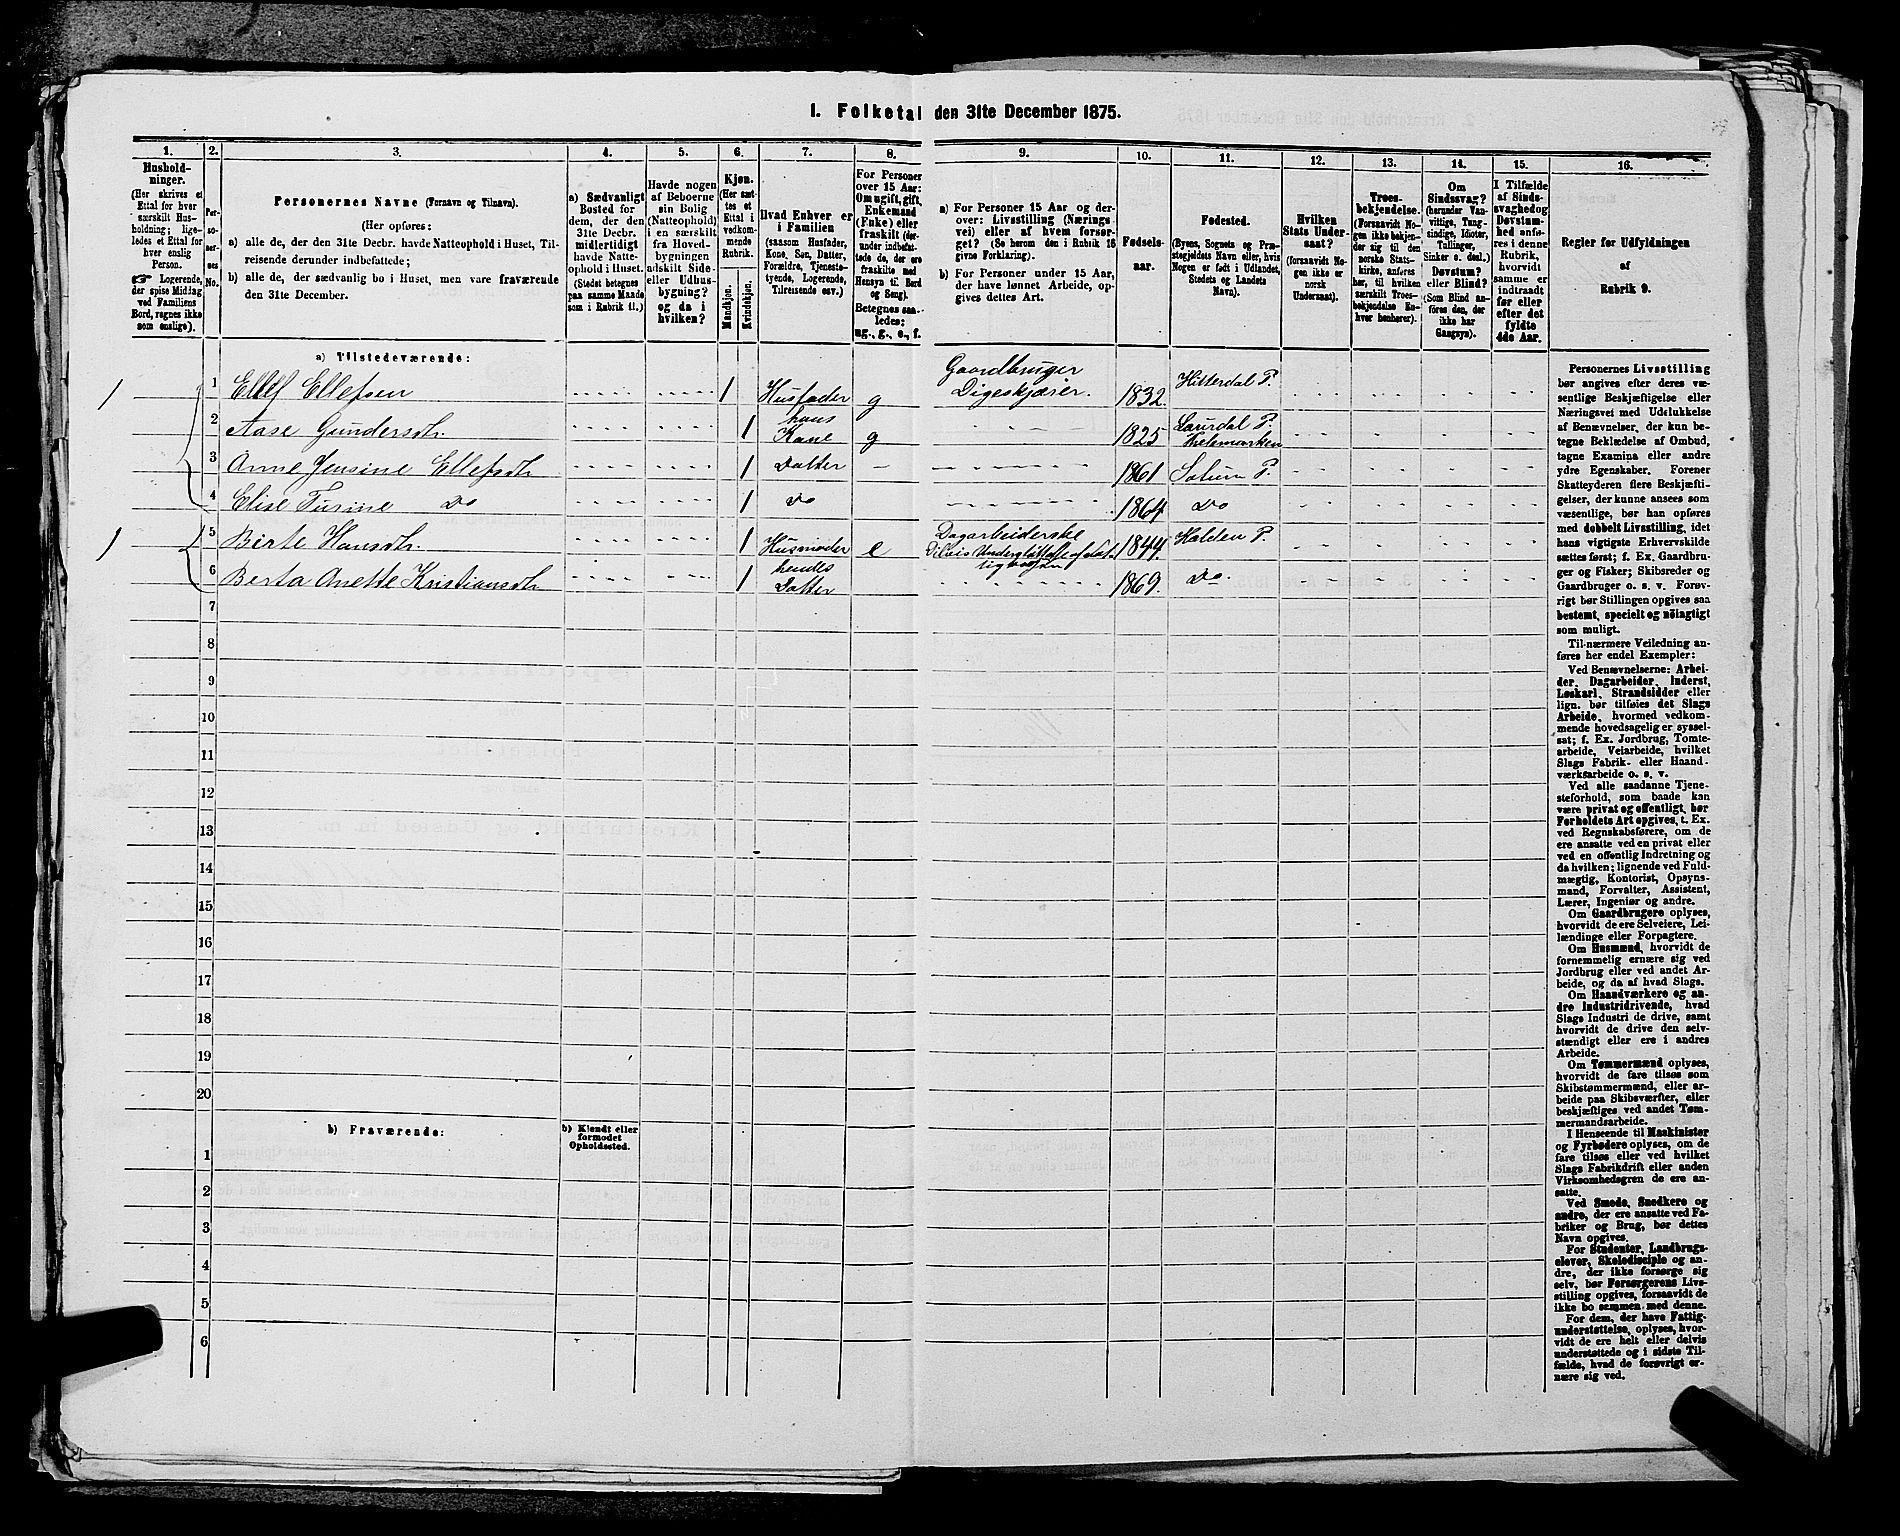 I. Folketal den 31te December 1875.
1. 2. 3. 4. 5. 6. 7. 8. 9. 10. 11. 12. 13. 14. 15. 16.
Hushold-
ninger.
(Her skrives et
Ettal for hver
særskilt Hus-
holdning; lige-
ledes et Ettal for
hver enslig
Person.
☞ Logerende,
der spise Middag
ved Familiens
Bord, regnes ikke
som enslige).
Per-
so-
ner-
nes
No.
Personernes Navne (Fornavn og Tilnavn).
(Her opføres:
a) alle de, der den 31te Decbr. havde Natteophold i Huset, Til-
reisende derunder indbefattede;
b) alle de, der sædvanlig bo i Huset, men vare fraværende
den 31te December.
a) Sædvanligt
Bosted for
dem, der den
31te Decbr.
midlertidigt
havde Natte-
ophold i Huset.
(Stedet betegnes
paa samme Maade
som i Rubrik 11.)
Havde nogen
af Beboerne
sin Bolig
(Natteophold)
i en særskilt
fra Hoved-
bygningen
adskilt Side-
eller Udhus-
bygning?
og da i
hvilken?
Kjøn.
(Her sæt-
tes et
Ettal i
vedkom-
mende
Rubrik.
Mandkjøn.
Kvindekjøn.
Hvad Enhver er
i Familien
(saasom Husfader,
Kone, Søn, Datter,
Forældre, Tjeneste-
tyende, Logerende,
Tilreisende osv.)
For Personer
over 15 Aar:
Om ugift, gift,
Enkemand
(Enke) eller
fraskilt (der-
under indbefat-
tede de, der ere
fraskilte med
Hensyn til Bord
og Seng).
Betegnes saa-
ledes:
ug., g., e., f.
a) For Personer 15 Aar og der-
over: Livsstilling (Nærings-
vei) eller af hvem forsør-
get? (Se herom den i Rubrik 16
givne Forklaring).
b) For Personer under 15 Aar,
der have lønnet Arbeide, op-
gives dettes Art.
Fødsels-
aar.
Fødested.
(Byens, Sognets og Præ-
stegjeldets Navn eller, hvis
Nogen er født i Udlandet,
Stedets og Landets
Navn).
Hvilken
Stats Under-
saat?
(forsaavidt No-
gen ikke er
norsk
Undersaat).
Troes-
bekjendelse.
(Forsaavidt No-
gen ikke bekjen-
der sig til den
norske Stats-
kirke, anføres
her, til hvilken
særskilt Troes-
bekjendelse En-
hver henhører).
Om
Sindssvag?
(herunder Van-
vittige, Tung-
sindige, Idioter,
Tullinger,
Sinker o. desl.)
Døvstum?
eller Blind?
(Som Blind an-
føres den, der
ikke har
Gangsyn).
I Tilfælde
af Sinds-
svaghed og
Døvstum-
hed anfø-
res i denne
Rubrik,
hvorvidt
samme er
indtraadt
før eller
efter det
fyldte
4de Aar.
Regler for Udfyldningen
af
Rubrik 9.
a) Tilstedeværende:
1 1 Ellef Ellefsen 1 Husfader g Gaardbruger Digeskjærer. 1832. Hitterdal P.
2 Aase Gundersdtr. 1 hans Kone g 1825 Laurdal P. Thelemarken
3 Anne Jensine Ellefsdtr. 1 Datter 1861 Solum P.
4 Elise Tusine Do 1 Do 1864 Do
1 5 Birte Hansdtr. 1 Husmoder e Dagarbeiderske 1844. Holden P.
6 Berta Anette Kristiansdtr. 1 hendes Datter 1869. Do
7
8
9
10
11
12
13
14
15
16
17
18
19
20
b) Fraværende:
b) Kjendt eller
formodet
Opholdssted.
1
2
3
4
5
6
Personernes Livsstilling
bør angives efter deres væ-
sentlige Beskjæftigelse eller
Næringsvei med Udelukkelse
af Benævnelser, der kun be-
tegne Beklædelse af Ombud,
tagne Examina eller andre
ydre Egenskaber. Forener
Skatteyderen flere Beskjæfti-
gelser, der kunne ansees som
væsentlige, bør han opføres
med dobbelt Livsstilling, idet
hans vigtigste Erhvervskilde
sættes først; f. Ex. Gaardbru-
ger og Fisker; Skibsreder og
Gaardbruger o. s. v. Forøv-
rigt bør Stillingen opgives saa
bestemt, specielt og nöiagtigt
som muligt.
Til-nærmere Veiledning an-
føres her endel Exempler:
Ved Benævnelserne: Arbei-
der, Dagarbeider, Inderst,
Løskarl, Strandsidder eller
lign. bør tilføies det Slags
Arbeide, hvormed vedkom-
mende hovedsagelig er syssel-
sat; f. Ex. Jordbrug, Tomte-
arbeide, Veiarbeide, hvilket
Slags Fabrik- eller Haand-
værksarbeide o. s. v.
Ved alle saadanne Tjene-
steforhold, som baade kan
være privat og offentligt, bør
Forholdets Art opgives, t. Ex.
ved Regnskabsførere, om de
ere ansatte ved en privat eller
ved en offentlig Indretning og
da hvilken; lignende ved Fuld-
mægtig, Kontorist, Opsyns-
mand, Forvalter, Assistent,
Lærer, Ingeniør og andre.
Om Gaardbrugere oplyses,
hvorvidt de ere Selveiere, Lei-
lændinge eller Forpagtere.
Om Husmænd, hvorvidt de
fornemmelig ernære sig ved
Jordbrug eller ved andet Ar-
beide, og da af hvad Slags.
Om Haandværkere og an-
dre Industridrivende, hvad
Slags Industri de drive, samt
hvorvidt de drive den selv-
stændigt eller ere i andres
Arbeide.
Om Tømmermænd oplyses,
hvorvidt de fare tilsøs som
Skibstømmermænd, eller ar-
beide paa Skibsværfter, eller
beskjæftiges ved andet Tøm-
mermandsarbeide.
I Henseende til Maskinister
og Fyrbødere oplyses, om de
fare tilsøs eller ved hvilket
Slags Fabrikdrift eller anden
Virksomhedsgren de ere an-
satte.
Ved Smede, Snedkere og
andre, der ere ansatte ved Fa-
briker og Brug, bør dettes
Navn opgives.
For Studenter, Landbrugs-
elever, Skoledisciple og an-
dre, der ikke forsørge sig
selv, bør Forsørgerens Livs-
stilling opgives, forsaavidt de
ikke bo sammen med denne.
For dem, der have Fattig-
understøttelse, oplyses, hvor-
vidt de ere helt eller delvis
understøttede og i sidste Til-
fælde, hvad de forøvrigt er-
nære sig ved.